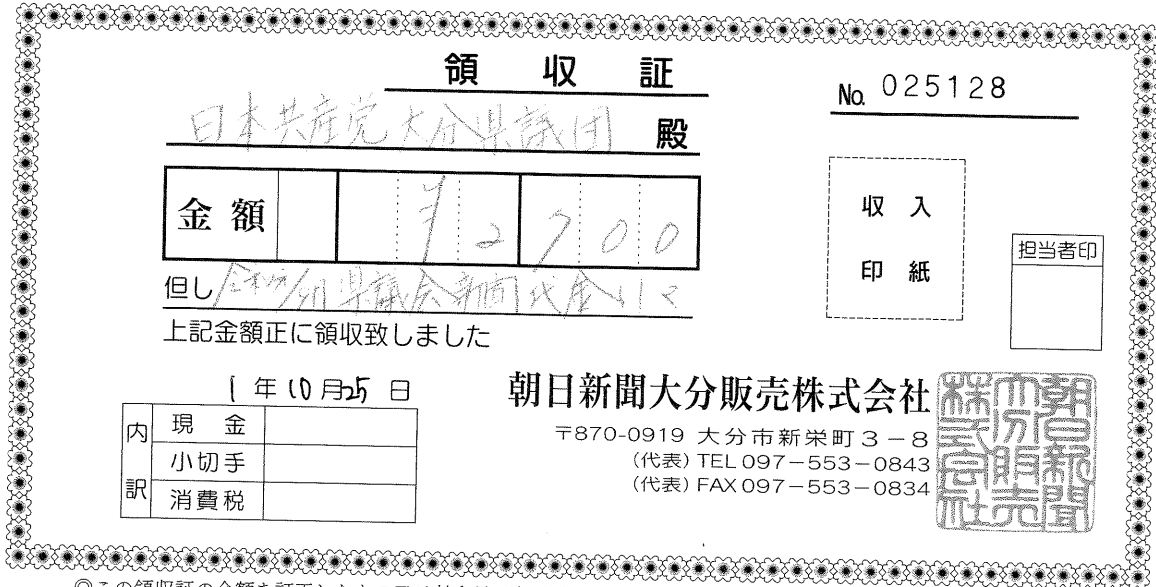 領収証
No. 025128
日本共産党大分県議団 殿
金額 ¥2,900
但し 県議会新聞代金
上記金額正に領収致しました
収入
印紙
担当者印
1年10月25日
内訳
現金
小切手
消費税
朝日新聞大分販売株式会社
〒870-0919 大分市新栄町3-8
(代表)TEL097-553-0843
(代表)FAX097-553-0834
朝日新聞大分販売株式会社
◎この領収証の金額を訂正